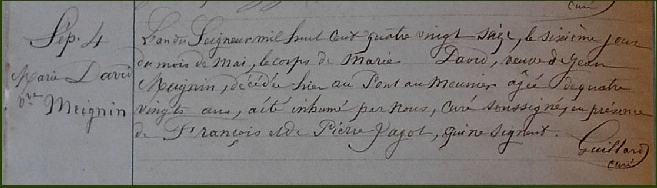 curé
Sép. 4
Marie David
Vve
Meignin
L'an du Seigneur mil huit cent quatre vingt seize, le sixième jour
du mois de Mai, le corps de Marie David, veuve de Jean
Meignin, décédée hier au Pont au Meunier âgée de quatre
vingts ans, a été inhumé par nous, Curé soussigné, en présence
de François et de Pierre Jagot, qui ne signent.
Guillard
curé